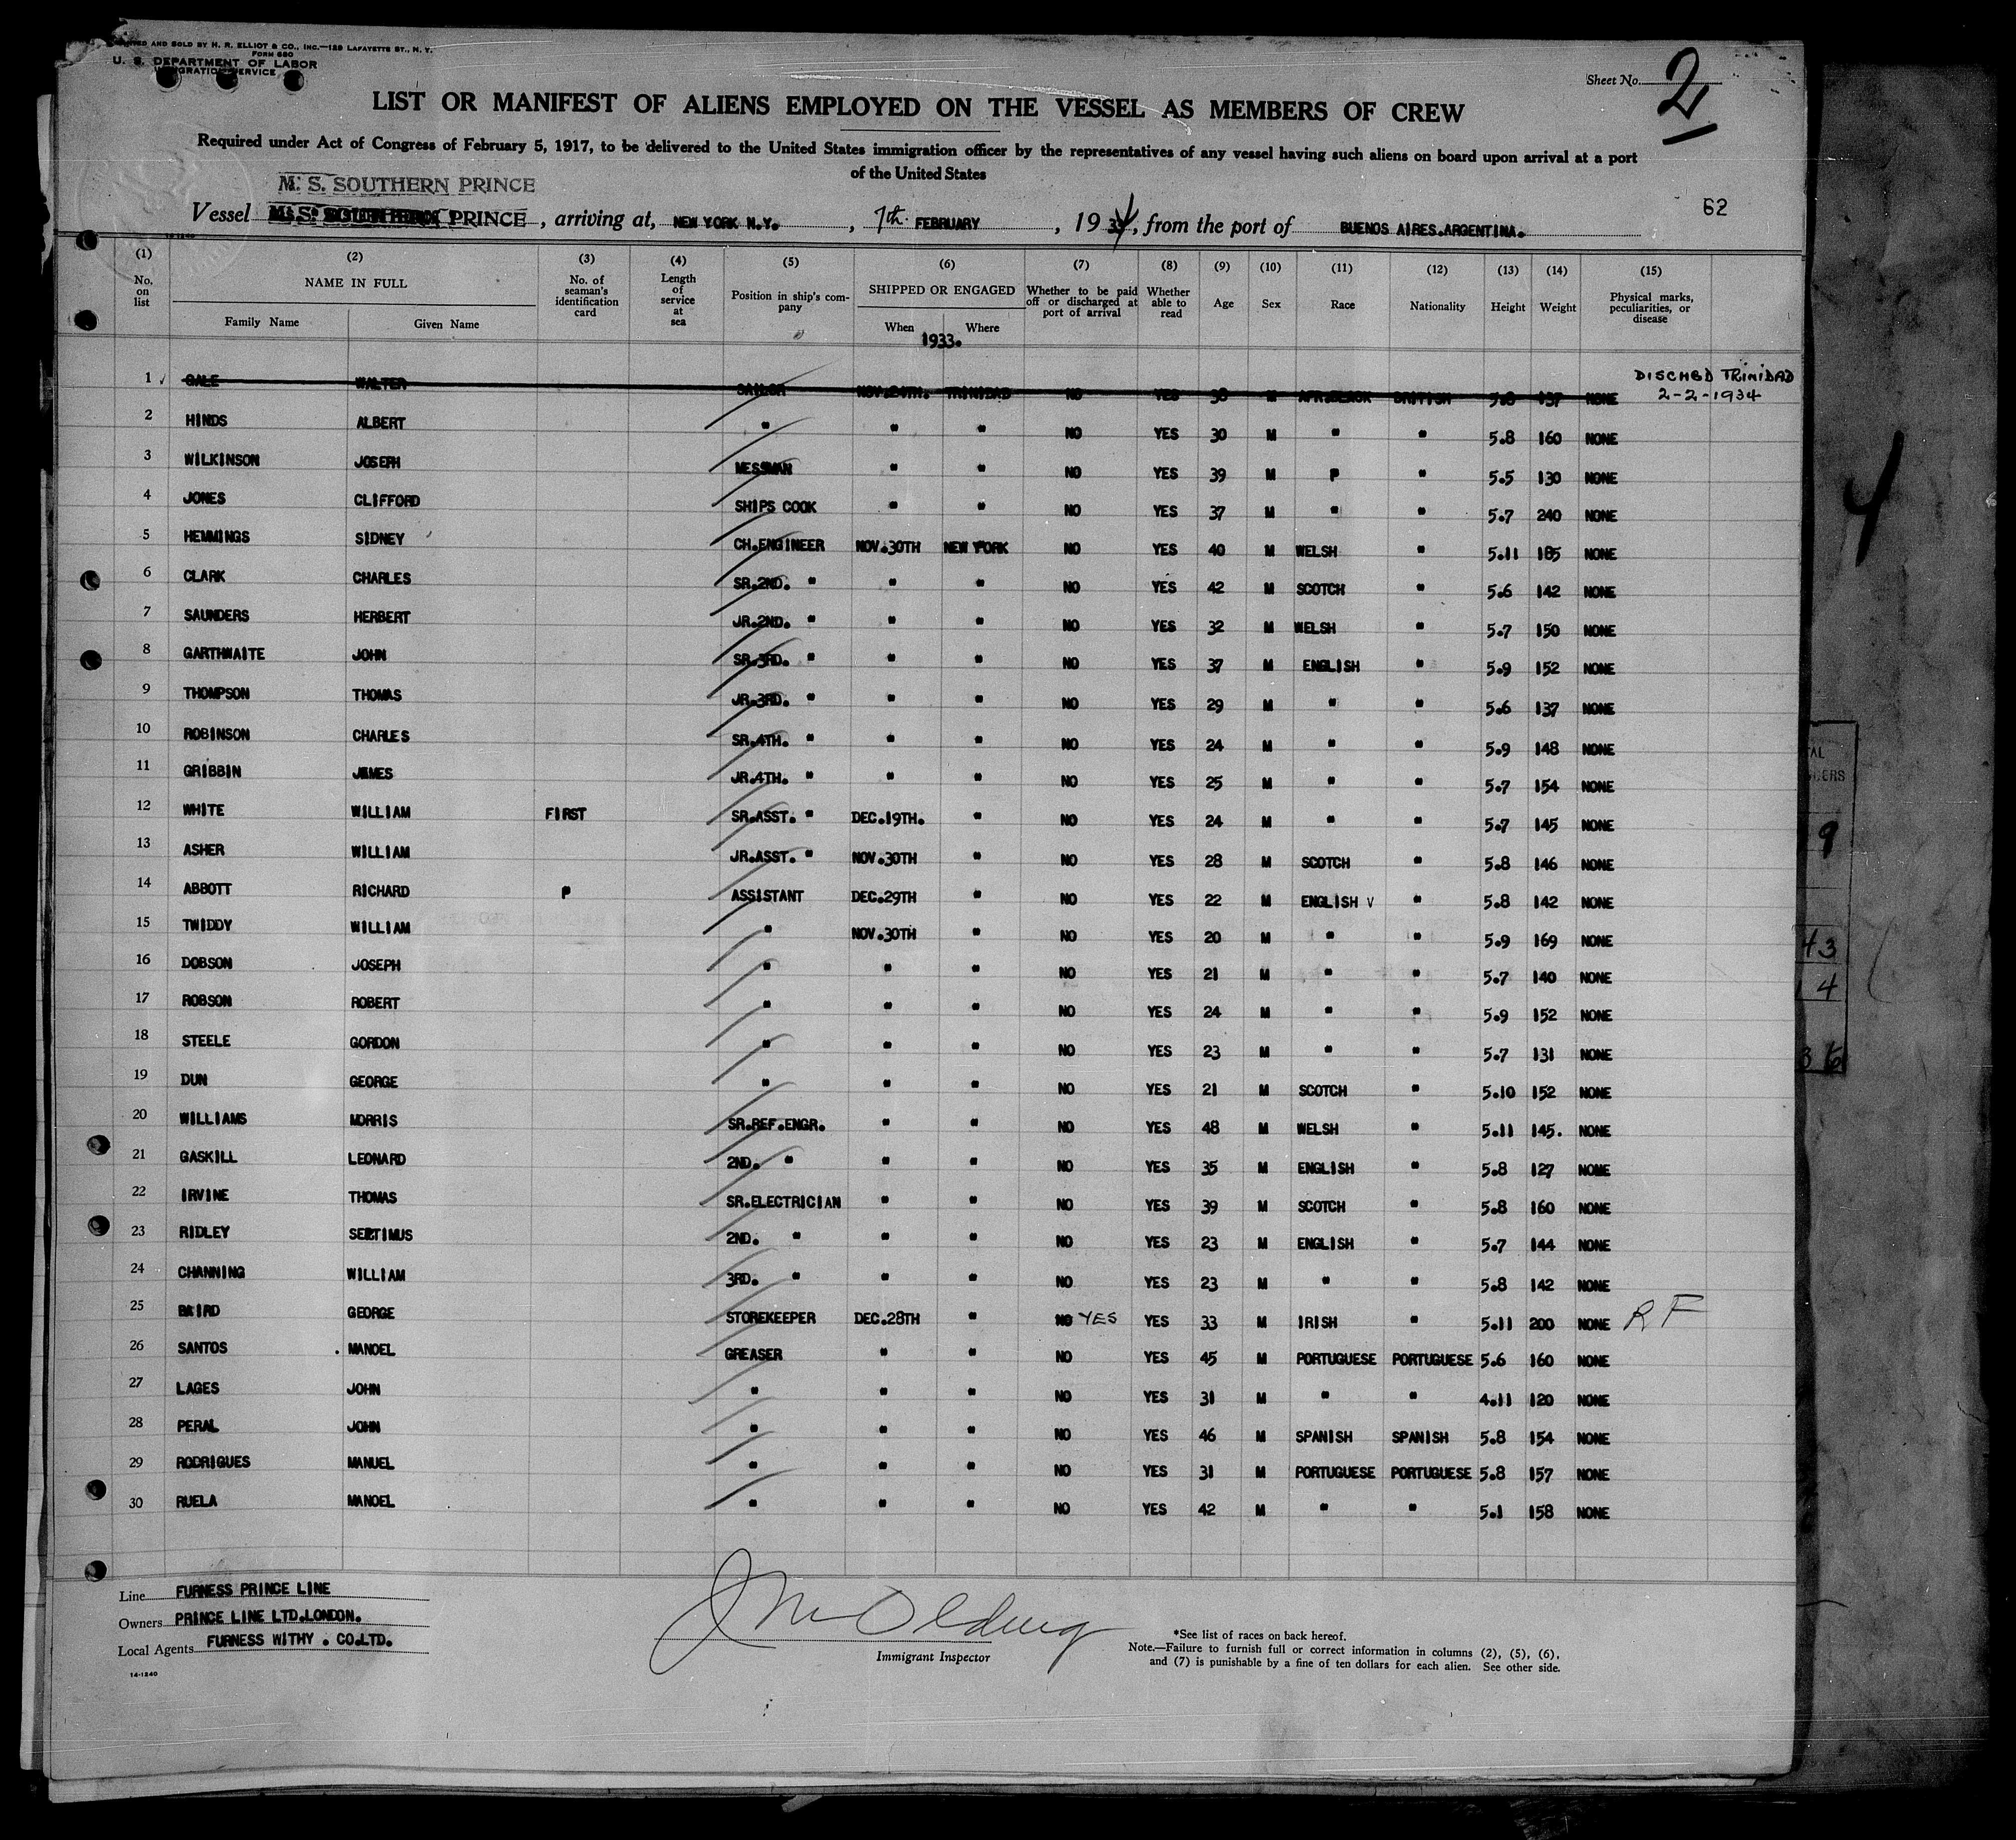 AND SOLD BY H. R. ELLIOT & CO., INC.—129 LAFAYETTE ST., N. Y.
FORM 680
U. S. DEPARTMENT OF LABOR
IMMIGRATION SERVICE
Sheet No. 2
LIST OR MANIFEST OF ALIENS EMPLOYED ON THE VESSEL AS MEMBERS OF CREW
Required under Act of Congress of February 5, 1917, to be delivered to the United States immigration officer by the representatives of any vessel having such aliens on board upon arrival at a port
of the United States
M. S. SOUTHERN PRINCE
62
Vessel PRINCE, arriving at, NEW YORK N.Y., 7th. FEBRUARY, 1934, from the port of BUENOS AIRES.ARGENTINA.
(1) (2) (3) (4) (5) (6) (7) (8) (9) (10) (11) (12) (13) (14) (15)
No. on list NAME IN FULL Family Name Given Name No. of seaman's identification card Length of service at sea Position in ship's company SHIPPED OR ENGAGED When Where Whether to be paid off or discharged at port of arrival Whether able to read Age Sex Race Nationality Height Weight Physical marks, peculiarities, or disease
1933.
1 GALE WALTER SAILOR NOV.24TH. TRINIDAD NO YES 38 M AFR.BLACK BRITISH 5.8 137 NONE DISCHBD TRINIDAD 2-2-1934
2 HINDS ALBERT " " " NO YES 30 M " " 5.8 160 NONE
3 WILKINSON JOSEPH MESSMAN " " NO YES 39 M P " 5.5 130 NONE
4 JONES CLIFFORD SHIPS COOK " " NO YES 37 M " " 5.7 240 NONE
5 HEMMINGS SIDNEY CH.ENGINEER NOV.30TH NEW YORK NO YES 40 M WELSH " 5.11 185 NONE
6 CLARK CHARLES SR.2ND. " " " NO YES 42 M SCOTCH " 5.6 142 NONE
7 SAUNDERS HERBERT JR.2ND. " " " NO YES 32 M WELSH " 5.7 150 NONE
8 GARTHWAITE JOHN SR.3RD. " " " NO YES 37 M ENGLISH " 5.9 152 NONE
9 THOMPSON THOMAS JR.3RD. " " " NO YES 29 M " " 5.6 137 NONE
10 ROBINSON CHARLES SR.4TH. " " " NO YES 24 M " " 5.9 148 NONE
11 GRIBBIN JAMES JR.4TH. " " " NO YES 25 M " " 5.7 154 NONE
12 WHITE WILLIAM FIRST SR.ASST. " DEC.19TH. " NO YES 24 M " " 5.7 145 NONE
13 ASHER WILLIAM JR.ASST. " NOV.30TH " NO YES 28 M SCOTCH " 5.8 146 NONE
14 ABBOTT RICHARD P ASSISTANT DEC.29TH " NO YES 22 M ENGLISH V " 5.8 142 NONE
15 TWIDDY WILLIAM " NOV.30TH " NO YES 20 M " " 5.9 169 NONE
16 DOBSON JOSEPH " " " NO YES 21 M " " 5.7 140 NONE
17 ROBSON ROBERT " " " NO YES 24 M " " 5.9 152 NONE
18 STEELE GORDON " " " NO YES 23 M " " 5.7 131 NONE
19 DUN GEORGE " " " NO YES 21 M SCOTCH " 5.10 152 NONE
20 WILLIAMS MORRIS SR.REF.ENGR. " " NO YES 48 M WELSH " 5.11 145. NONE
21 GASKILL LEONARD 2ND. " " " NO YES 35 M ENGLISH " 5.8 127 NONE
22 IRVINE THOMAS SR.ELECTRICIAN " " NO YES 39 M SCOTCH " 5.8 160 NONE
23 RIDLEY SEPTIMUS 2ND. " " " NO YES 23 M ENGLISH " 5.7 144 NONE
24 CHANNING WILLIAM 3RD. " " " NO YES 23 M " " 5.8 142 NONE
25 BAIRD GEORGE STOREKEEPER DEC.28TH " NO YES YES 33 M IRISH " 5.11 200 NONE RF
26 SANTOS . MANOEL GREASER " " NO YES 45 M PORTUGUESE PORTUGUESE 5.6 160 NONE
27 LAGES JOHN " " " NO YES 31 M " " 4.11 120 NONE
28 PERAL JOHN " " " NO YES 46 M SPANISH SPANISH 5.8 154 NONE
29 RODRIGUES MANUEL " " " NO YES 31 M PORTUGUESE PORTUGUESE 5.8 157 NONE
30 RUELA MANOEL " " " NO YES 42 M " " 5.1 158 NONE
Line FURNESS PRINCE LINE
Owners PRINCE LINE LTD.LONDON.
Local Agents FURNESS WITHY . CO.LTD.
14-1240
Immigrant Inspector
*See list of races on back hereof.
Note.—Failure to furnish full or correct information in columns (2), (5), (6),
and (7) is punishable by a fine of ten dollars for each alien. See other side.
4
9
43
4
36